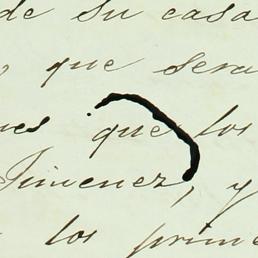 de su casa
, que sera
ues que los
Jimenez, y
los prime